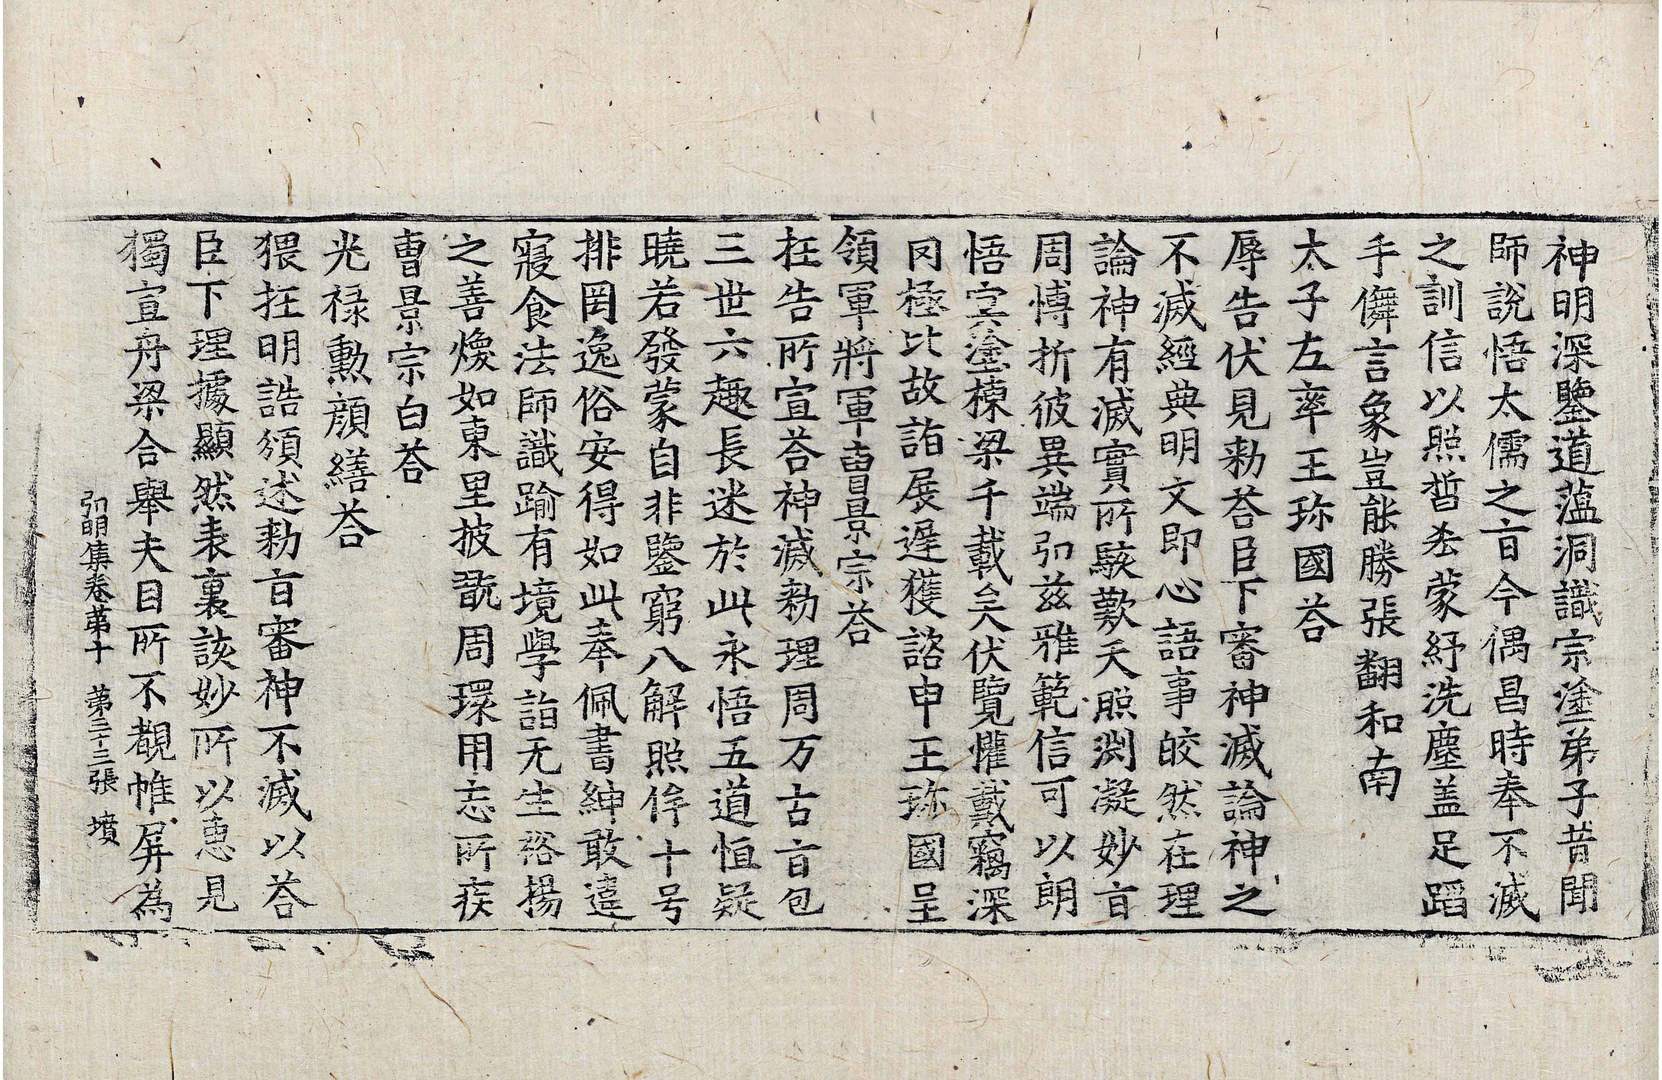 神明深鑒道薀洞識宗塗弟子昔聞
師說悟太儒之㫖今偶昌時奉不滅
之訓信以照晢㳒蒙紓洗塵盖足蹈
手儛言象豈能勝張翻和南
太子左率王珎國荅
辱告伏見勑荅臣下審神滅論神之
不滅經典明文即心語事皎然在理
論神有滅實所駭歎天照渕凝妙㫖
周愽折彼異端弘兹雅範信可以朗
悟㝠塗棟梁千載矣伏覽懽戴竊深
罔極比故詣展遲獲諮申王珎國呈
領軍將軍曺景宗荅
抂告所宣荅神滅勑理周万古㫖包
三世六趣長迷於此永悟五道恒疑
曉若發蒙自非鑒窮八解照侔十号
排罔逸俗安得如此奉佩書紳敢違
寢食法師識踰有境學詣无生裕揚
之善煥如東里披翫周環用忘所疾
曺景宗白荅
光禄勲顔繕荅
猥抂明誥頒述勑㫖審神不滅以荅
臣下理據顯然表裏該妙所以惠見
獨宣舟梁合舉夫目所不覩帷屏為
弘明集卷第十　第二十三張　墳